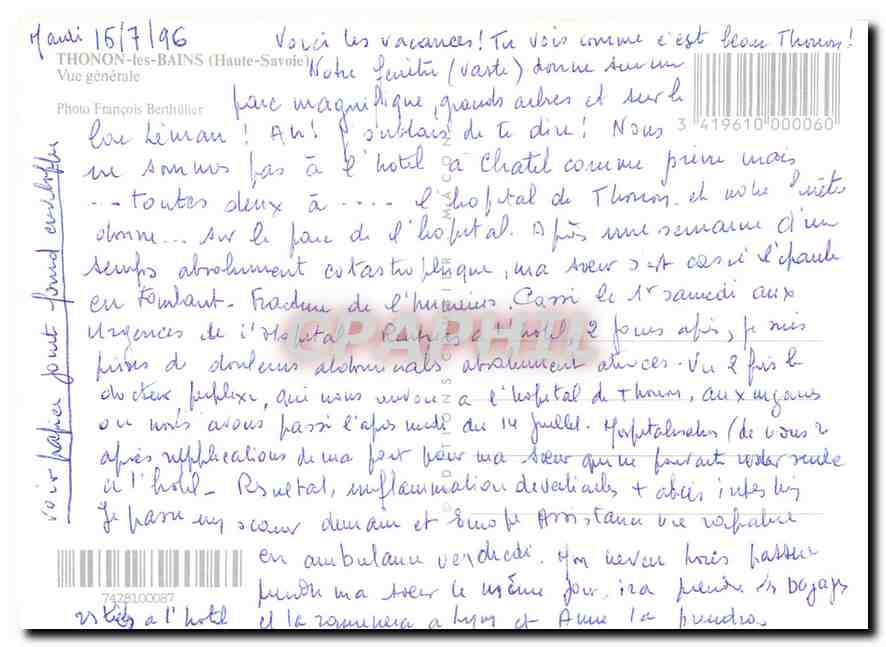 Mardi 15/7/96 Voici les vacances! Tu vois comme c'est beau Thonon!
THONON-les-BAINS (Haute-Savoie)
Vue générale
Photo François Berthillier
Notre fenêtre (vaste) donne sur un
parc magnifique, grands arbres et sur le
3 419610 000060
Lac Léman! Ah! j'oubliais de te dire! Nous
ne sommes pas à l'hôtel à Chatel comme prévu mais
... toutes deux à .... l'hopital de Thonon et notre fenêtre
donne... sur le parc de l'hopital. Après une semaine d'un
temps absolument catastrophique, ma soeur s'est cassé l'épaule
en tombant - Fracture de l'humérus. Passé le 1er samedi aux
Urgences de l'Hopital. Rentrés à l'hotel, 2 jours après, je suis
prises de douleurs abdominales absolument atroces. Vu 2 fois le
docteur perplexe, qui nous envoie à l'hopital de Thonon, aux urgences
où nous avons passé l'après midi du 14 juillet. Hospitalisation (de nous 2
après supplications de ma part pour ma soeur qui ne pouvait rester seule
à l'hotel - Résultat, inflammation + abcès intestin
Je passe un scanner demain et Europ Assistance me rapatrie
en ambulance vendredi. Mon neveu
prendre ma soeur le même jour, ira prendre les bagages
restés à l'hotel et la ramènera à Lyon et Anne la prendra.
voir papier joint fond enveloppe
EDITIONS CELLARD MACON
7428100087
CPAPHIL